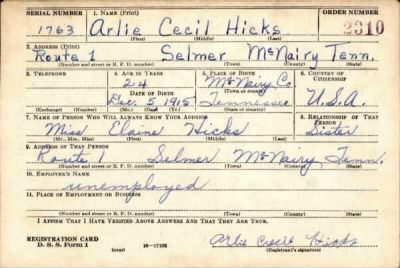 SERIAL NUMBER 1. NAME (Print) ORDER NUMBER
1763 Arlie Cecil Hicks 2310
(First) (Middle) (Last)
2. ADDRESS (Print)
Route 1 Selmer McNairy Tenn.
(Number and street or R. F. D. number) (Town) (County) (State)
3. TELEPHONE 4. AGE IN YEARS 5. PLACE OF BIRTH 6. COUNTRY OF CITIZENSHIP
24 McNairy Co.
DATE OF BIRTH (Town or county)
Dec. 5, 1915 Tennessee U.S.A.
(Exchange) (Number) (Mo.) (Day) (Yr.) (State or country)
7. NAME OF PERSON WHO WILL ALWAYS KNOW YOUR ADDRESS 8. RELATIONSHIP OF THAT PERSON
Miss Elaine Hicks Sister
(Mr., Mrs., Miss) (First) (Middle) (Last)
9. ADDRESS OF THAT PERSON
Route 1 Selmer McNairy Tenn.
(Number and street or R. F. D. number) (Town) (County) (State)
10. EMPLOYER'S NAME
unemployed
11. PLACE OF EMPLOYMENT OR BUSINESS
(Number and street or R. F. D. number) (Town) (County) (State)
I AFFIRM THAT I HAVE VERIFIED ABOVE ANSWERS AND THAT THEY ARE TRUE.
REGISTRATION CARD
D. S. S. Form 1 (over) 16—17105 Arlie Cecil Hicks
(Registrant's signature)